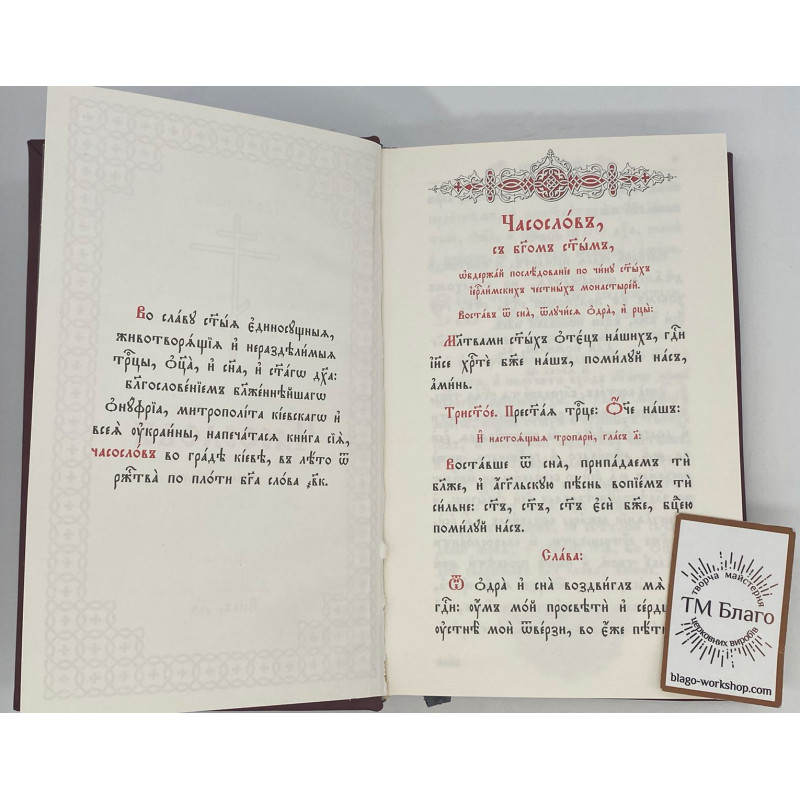 Во сла́ву ст҃ы́ѧ є҆диносꙋ́щныѧ,
животворѧ́щїѧ и҆ нераздѣ́лимыѧ
трⷪ҇цы, ѻ҆ц҃а̀, и҆ сн҃а, и҆ ст҃а́гѡ дх҃а:
блгⷭ҇ове́нїемъ бл҃же́ннѣйшагѡ
ѻ҆нꙋ́фрїа, митрополі́та кі́евскагѡ и҆
всеѧ̀ ᲂу҆краи́ны, напеча́тасѧ кни́га сїѧ̀,
часосло́въ во гра́дѣ кі́евѣ, въ лѣ́то ѿ
ржⷭ҇тва̀ по пло́ти бг҃а сло́ва ҂вк.
Часосло́въ,
съ бг҃омъ ст҃ы́мъ,
ѡ҆держа́й послѣ́дованїе по чи́нꙋ ст҃ы́хъ
і҆ерⷭ҇ли́мскихъ че́стныхъ монастыре́й.
Воста́въ ѿ сна̀, ѿлꙋчи́сѧ ѻ҆дра̀, и҆ рцы̀:
Мл҃твами ст҃ы́хъ ѻ҆тє́цъ на́шихъ, гдⷭ҇и
і҆и҃се хрⷭ҇тѐ бж҃е на́шъ, поми́лꙋй на́съ,
а҆ми́нь.
Трист҃о́е. Прест҃а́ѧ трⷪ҇це: Ѻ҆́ч҃е на́шъ:
И҆ настоѧ́щыѧ тропарѝ, гла́съ а҃:
Воста́вше ѿ сна̀, припа́даемъ тѝ
бл҃же, и҆ а҆́гг҃льскꙋю пѣ́снь вопїе́мъ тѝ
си́льне: ст҃ъ, ст҃ъ, ст҃ъ є҆сѝ бж҃е, бцⷣею
поми́лꙋй на́съ.
Сла́ва:
Ѿ ѻ҆дра̀ и҆ сна̀ воздви́глъ мѧ̀
гдⷭ҇и: ᲂу҆́мъ мо́й просвѣтѝ и҆ се́рдц
ᲂу҆стнѣ̀ моѝ ѿве́рзи, во є҆́же пѣ́ти
творча майстерня
ТМ Благо
церковних виробів
blago-workshop.com